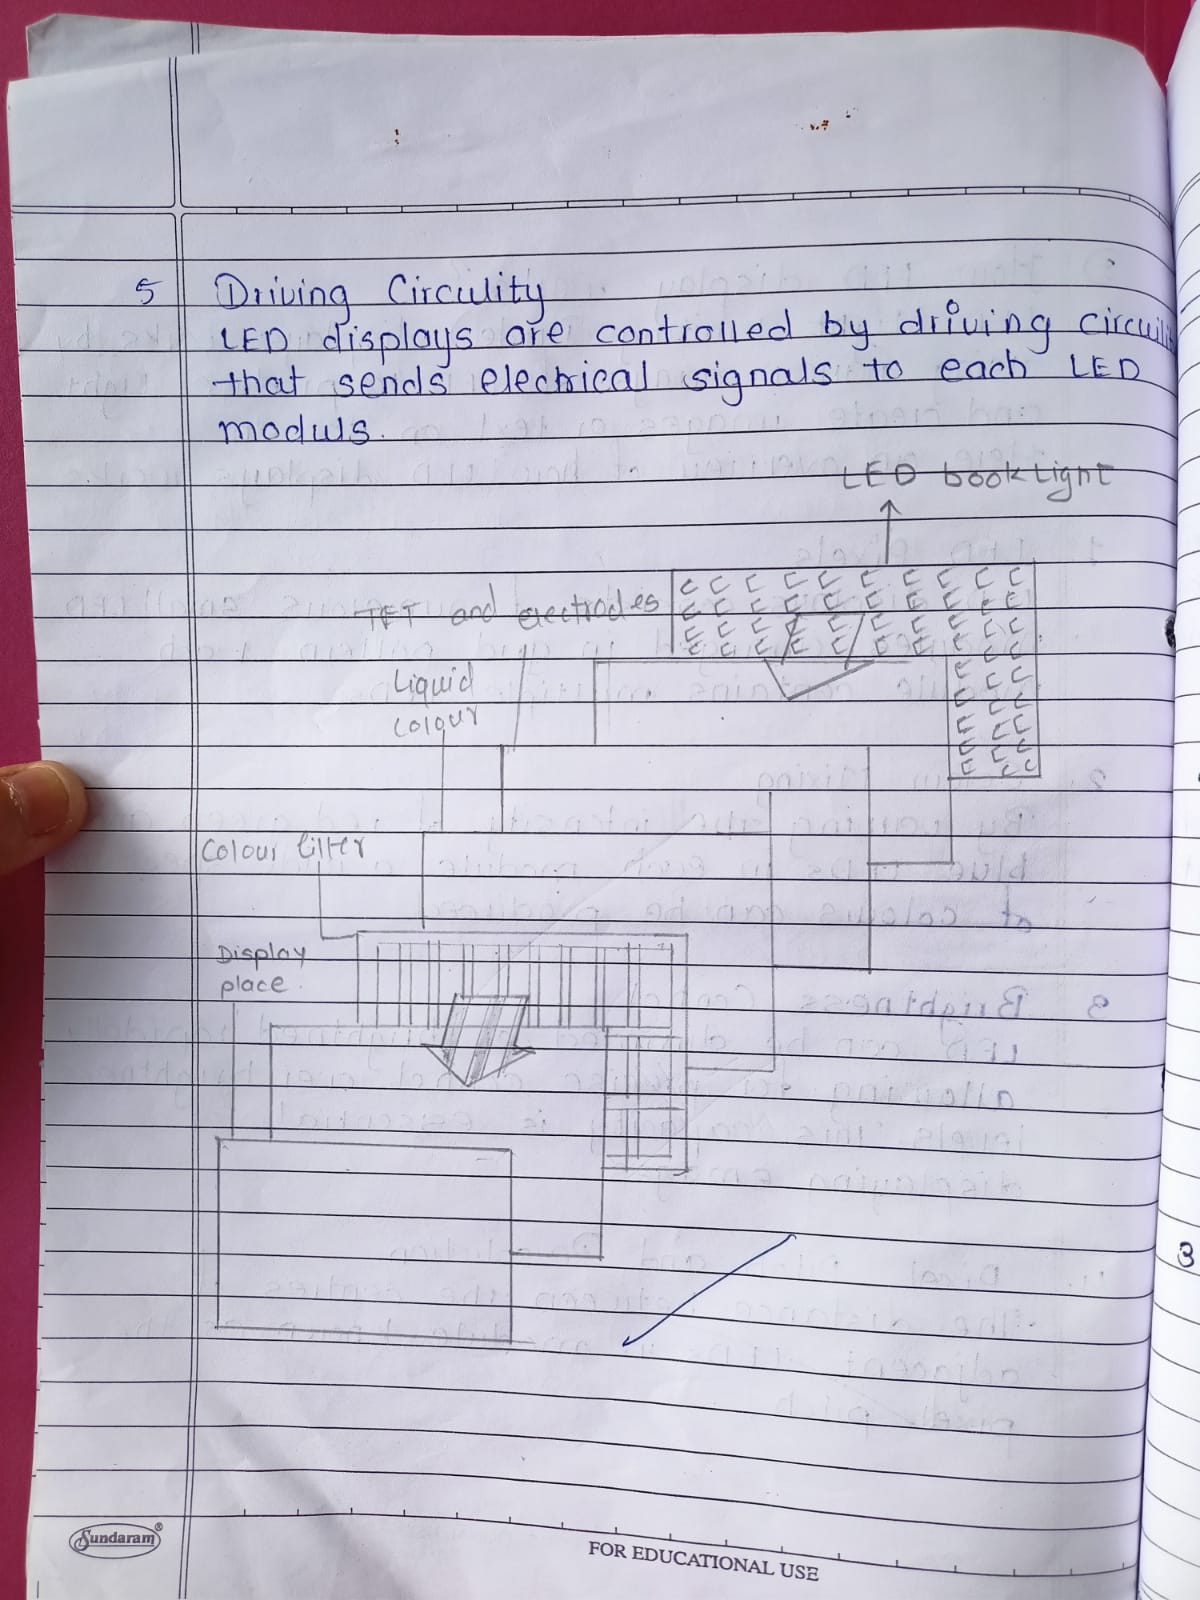 5 Driving Circulity
LED displays are controlled by driving circuilit
that sends electrical signals to each LED
moduls.
LED book Light
TFT and electrodes
Liquid
colour
Colour filter
Display
place.
3
Sundaram®
FOR EDUCATIONAL USE